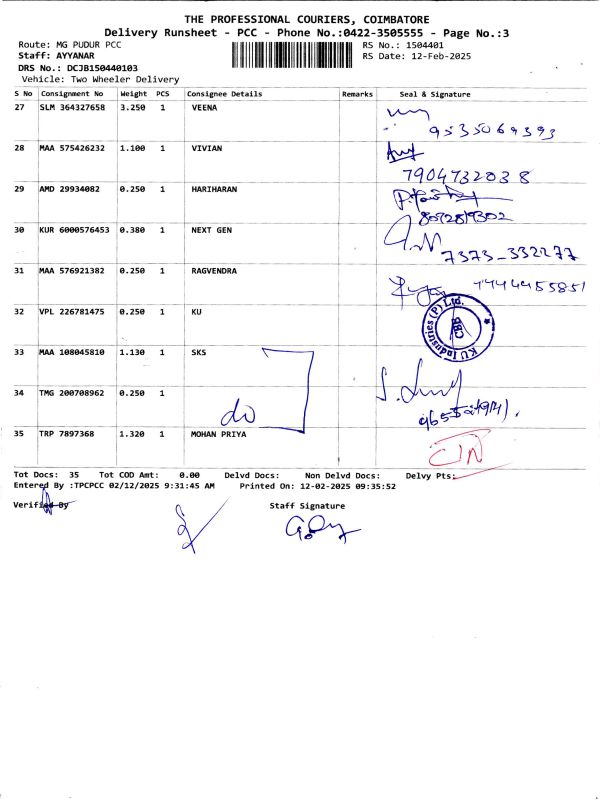 THE PROFESSIONAL COURIERS, COIMBATORE
Delivery Runsheet - PCC - Phone No.:0422-3505555 - Page No.:3
Route: MG PUDUR PCC RS No.: 1504401
Staff: AYYANAR RS Date: 12-Feb-2025
DRS No.: DCJB150440103
Vehicle: Two Wheeler Delivery
S No Consignment No Weight PCS Consignee Details Remarks Seal & Signature
27 SLM 364327658 3.250 1 VEENA
9535069393
28 MAA 575426232 1.100 1 VIVIAN
7904732038
29 AMD 29934082 0.250 1 HARIHARAN
30 KUR 6000576453 0.380 1 NEXT GEN
7373-332277
31 MAA 576921382 0.250 1 RAGVENDRA
32 VPL 226781475 0.250 1 KU
KU Industries (P) Ltd. CBE
33 MAA 108045810 1.130 1 SKS
34 TMG 200708962 0.250 1
do
35 TRP 7897368 1.320 1 MOHAN PRIYA
Tot Docs: 35 Tot COD Amt: 0.00 Delvd Docs: Non Delvd Docs: Delvy Pts:
Entered By :TPCPCC 02/12/2025 9:31:45 AM Printed On: 12-02-2025 09:35:52
Verified By Staff Signature